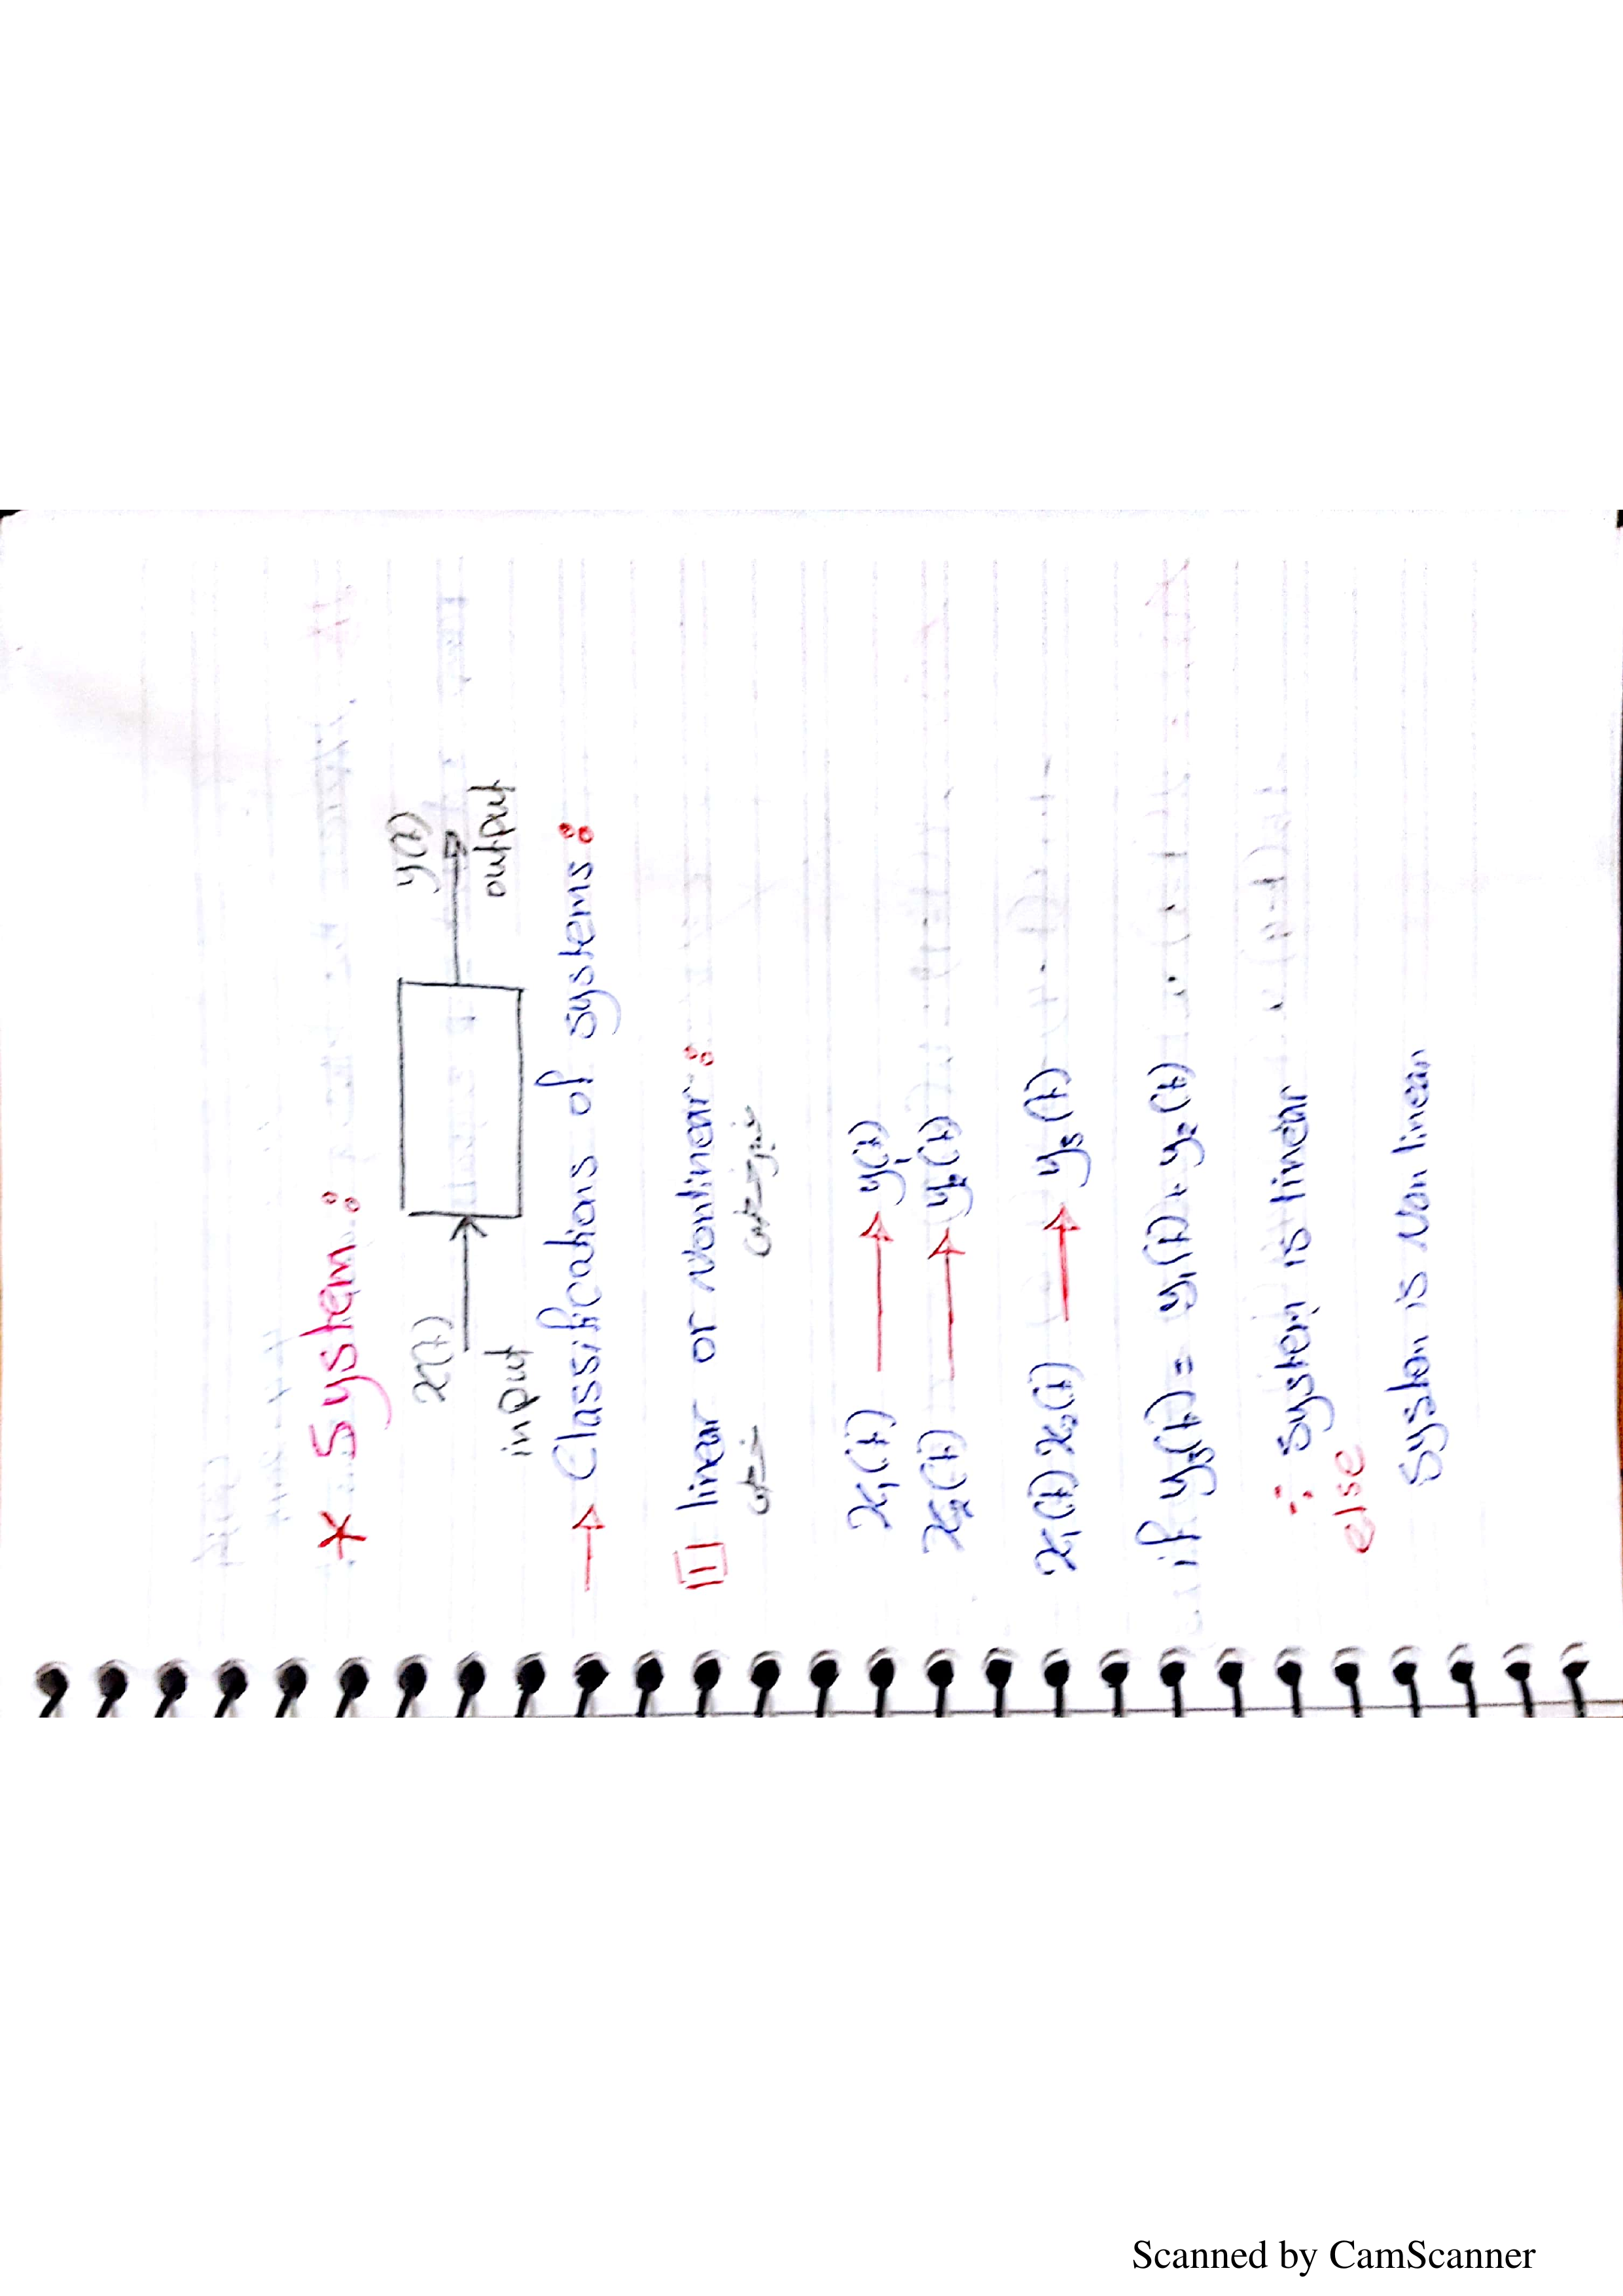 * System:
x(t) y(t)
input output
→ Classifications of systems:
[1] linear or Nonlinear:
خطى غير خطى
x₁(t) → y₁(t)
x₂(t) → y₂(t)
x₁(t) x₂(t) → y₃(t)
if y₃(t) = y₁(t) + y₂(t)
∴ system is linear
else
system is Non linear
Scanned by CamScanner